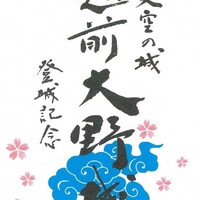 天空の城
越前大野城
登城記念